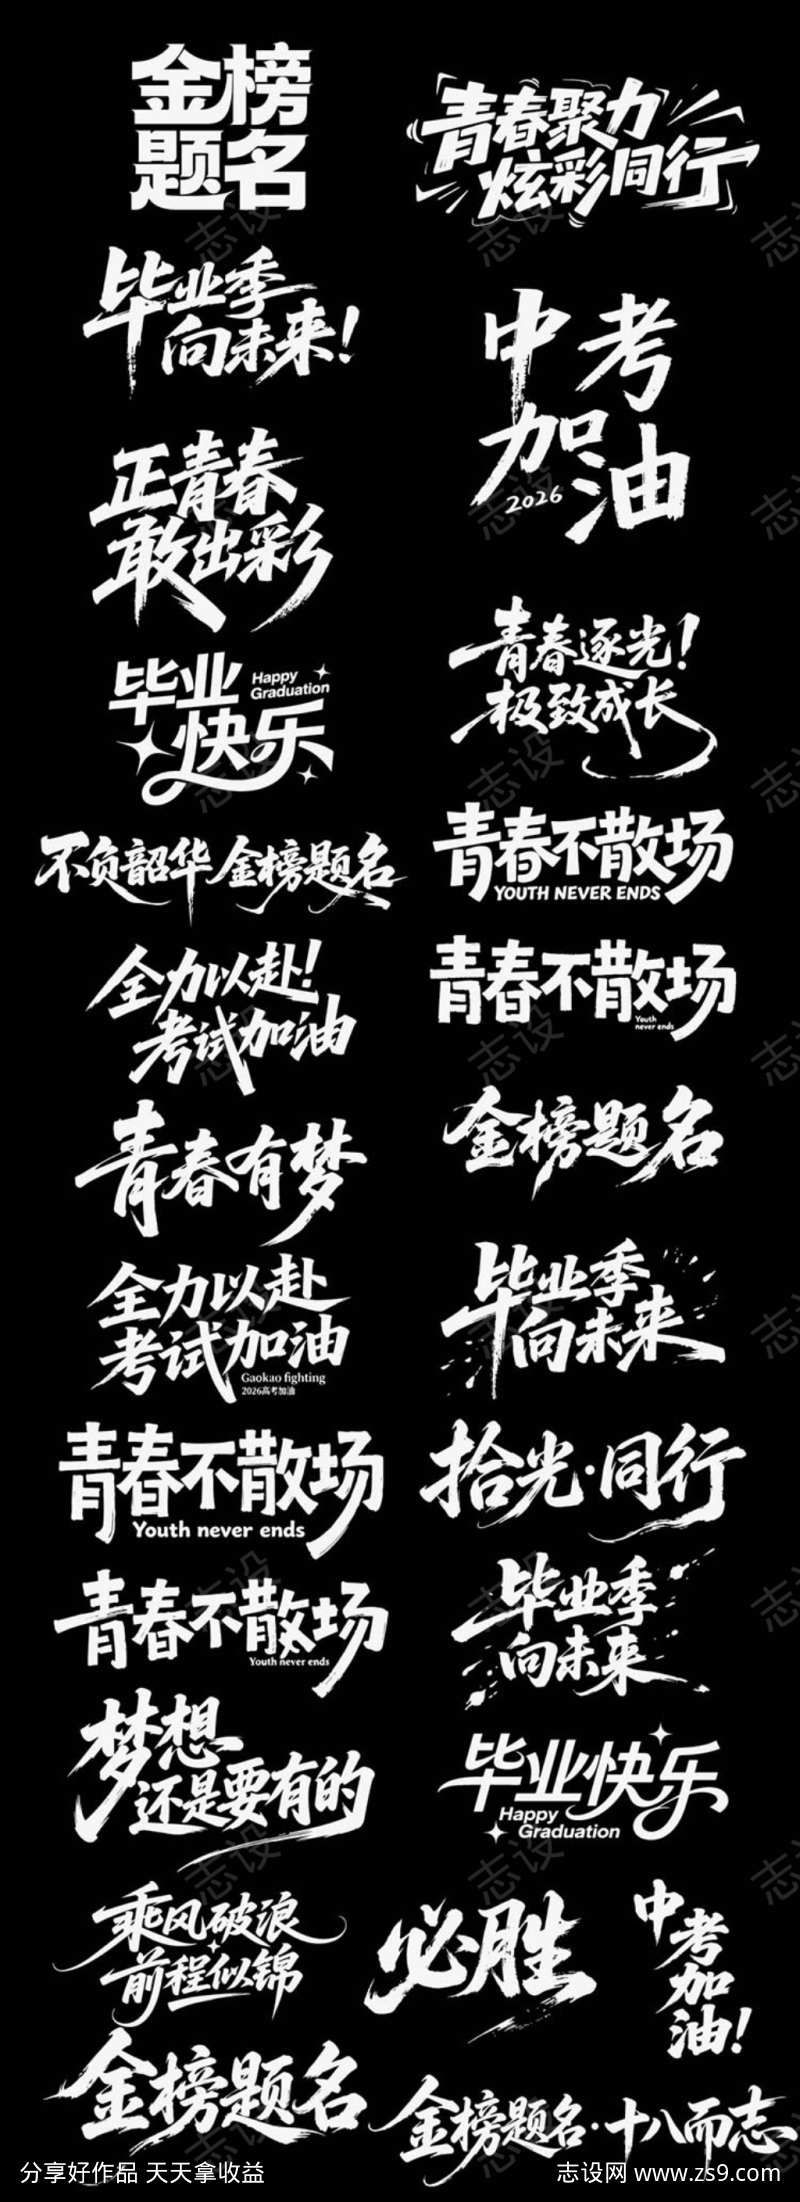 金榜
题名
青春聚力
炫彩同行
毕业季
向未来!
中考
加油
2026
正青春
敢出彩
青春逐光!
极致成长
毕业
快乐
Happy
Graduation
不负韶华 金榜题名
青春不散场
YOUTH NEVER ENDS
全力以赴!
考试加油
青春不散场
Youth
never ends
青春有梦
金榜题名
全力以赴
考试加油
Gaokao fighting
2026高考加油
毕业季
向未来
青春不散场
Youth never ends
拾光·同行
青春不散场
Youth never ends
毕业季
向未来
梦想
还是要有的
毕业快乐
Happy
Graduation
乘风破浪
前程似锦
必胜
中考加油!
金榜题名
金榜题名·十八而志
分享好作品 天天拿收益
志设网 www.zs9.com
志设